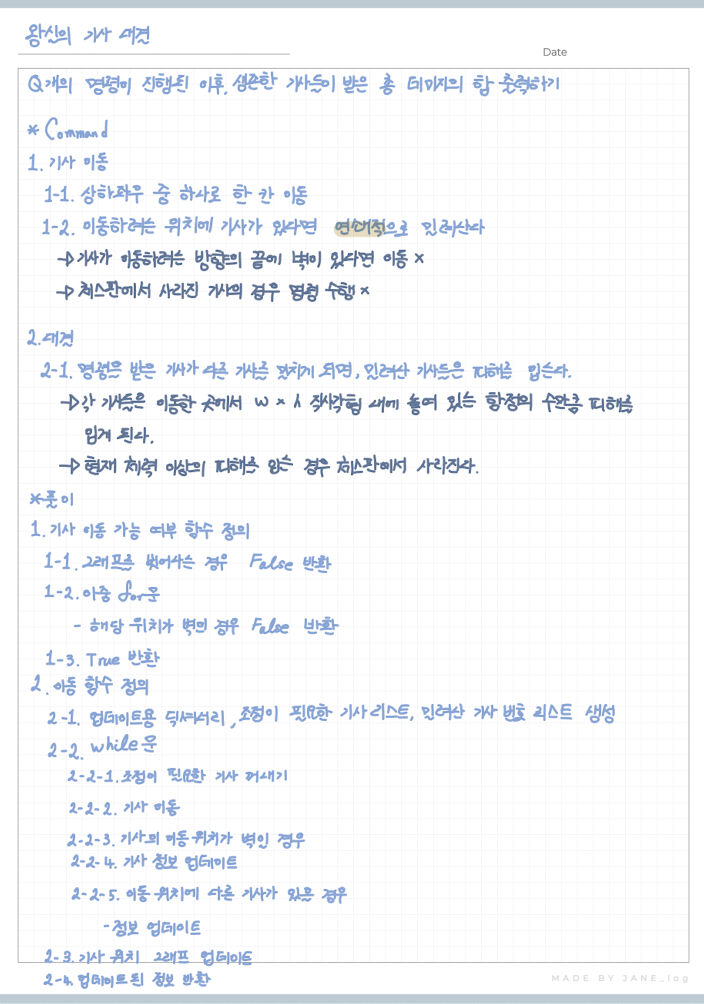 왕실의 기사 대결
Date
Q개의 명령이 진행된 이후, 생존한 기사들이 받은 총 데미지의 합 출력하기
* Command
1. 기사 이동
1-1. 상하좌우 중 하나로 한 칸 이동
1-2. 이동하려는 위치에 기사가 있다면 연쇄적으로 밀려난다
→ 기사가 이동하려는 방향의 끝에 벽이 있다면 이동 x
→ 체스판에서 사라진 기사의 경우 명령 수행 x
2. 대결
2-1. 명령을 받은 기사가 다른 기사를 밀치게 되면, 밀려난 기사들은 피해를 입는다.
→ 각 기사들은 이동한 곳에서 w x h 직사각형 내에 놓여 있는 함정의 수만큼 피해를
입게 된다.
→ 현재 체력 이상의 피해를 입는 경우 체스판에서 사라진다.
*풀이
1. 기사 이동 가능 여부 함수 정의
1-1. 그래프를 벗어나는 경우 False 반환
1-2. 이중 for문
- 해당 위치가 벽인 경우 False 반환
1-3. True 반환
2. 이동 함수 정의
2-1. 업데이트용 딕셔너리, 조정이 필요한 기사 리스트, 밀려난 기사 번호 리스트 생성
2-2. while문
2-2-1. 조정이 필요한 기사 꺼내기
2-2-2. 기사 이동
2-2-3. 기사의 이동 위치가 벽인 경우
2-2-4. 기사 정보 업데이트
2-2-5. 이동 위치에 다른 기사가 있을 경우
- 정보 업데이트
2-3. 기사 위치 그래프 업데이트
2-4. 업데이트된 정보 반환
MADE BY JANE_log